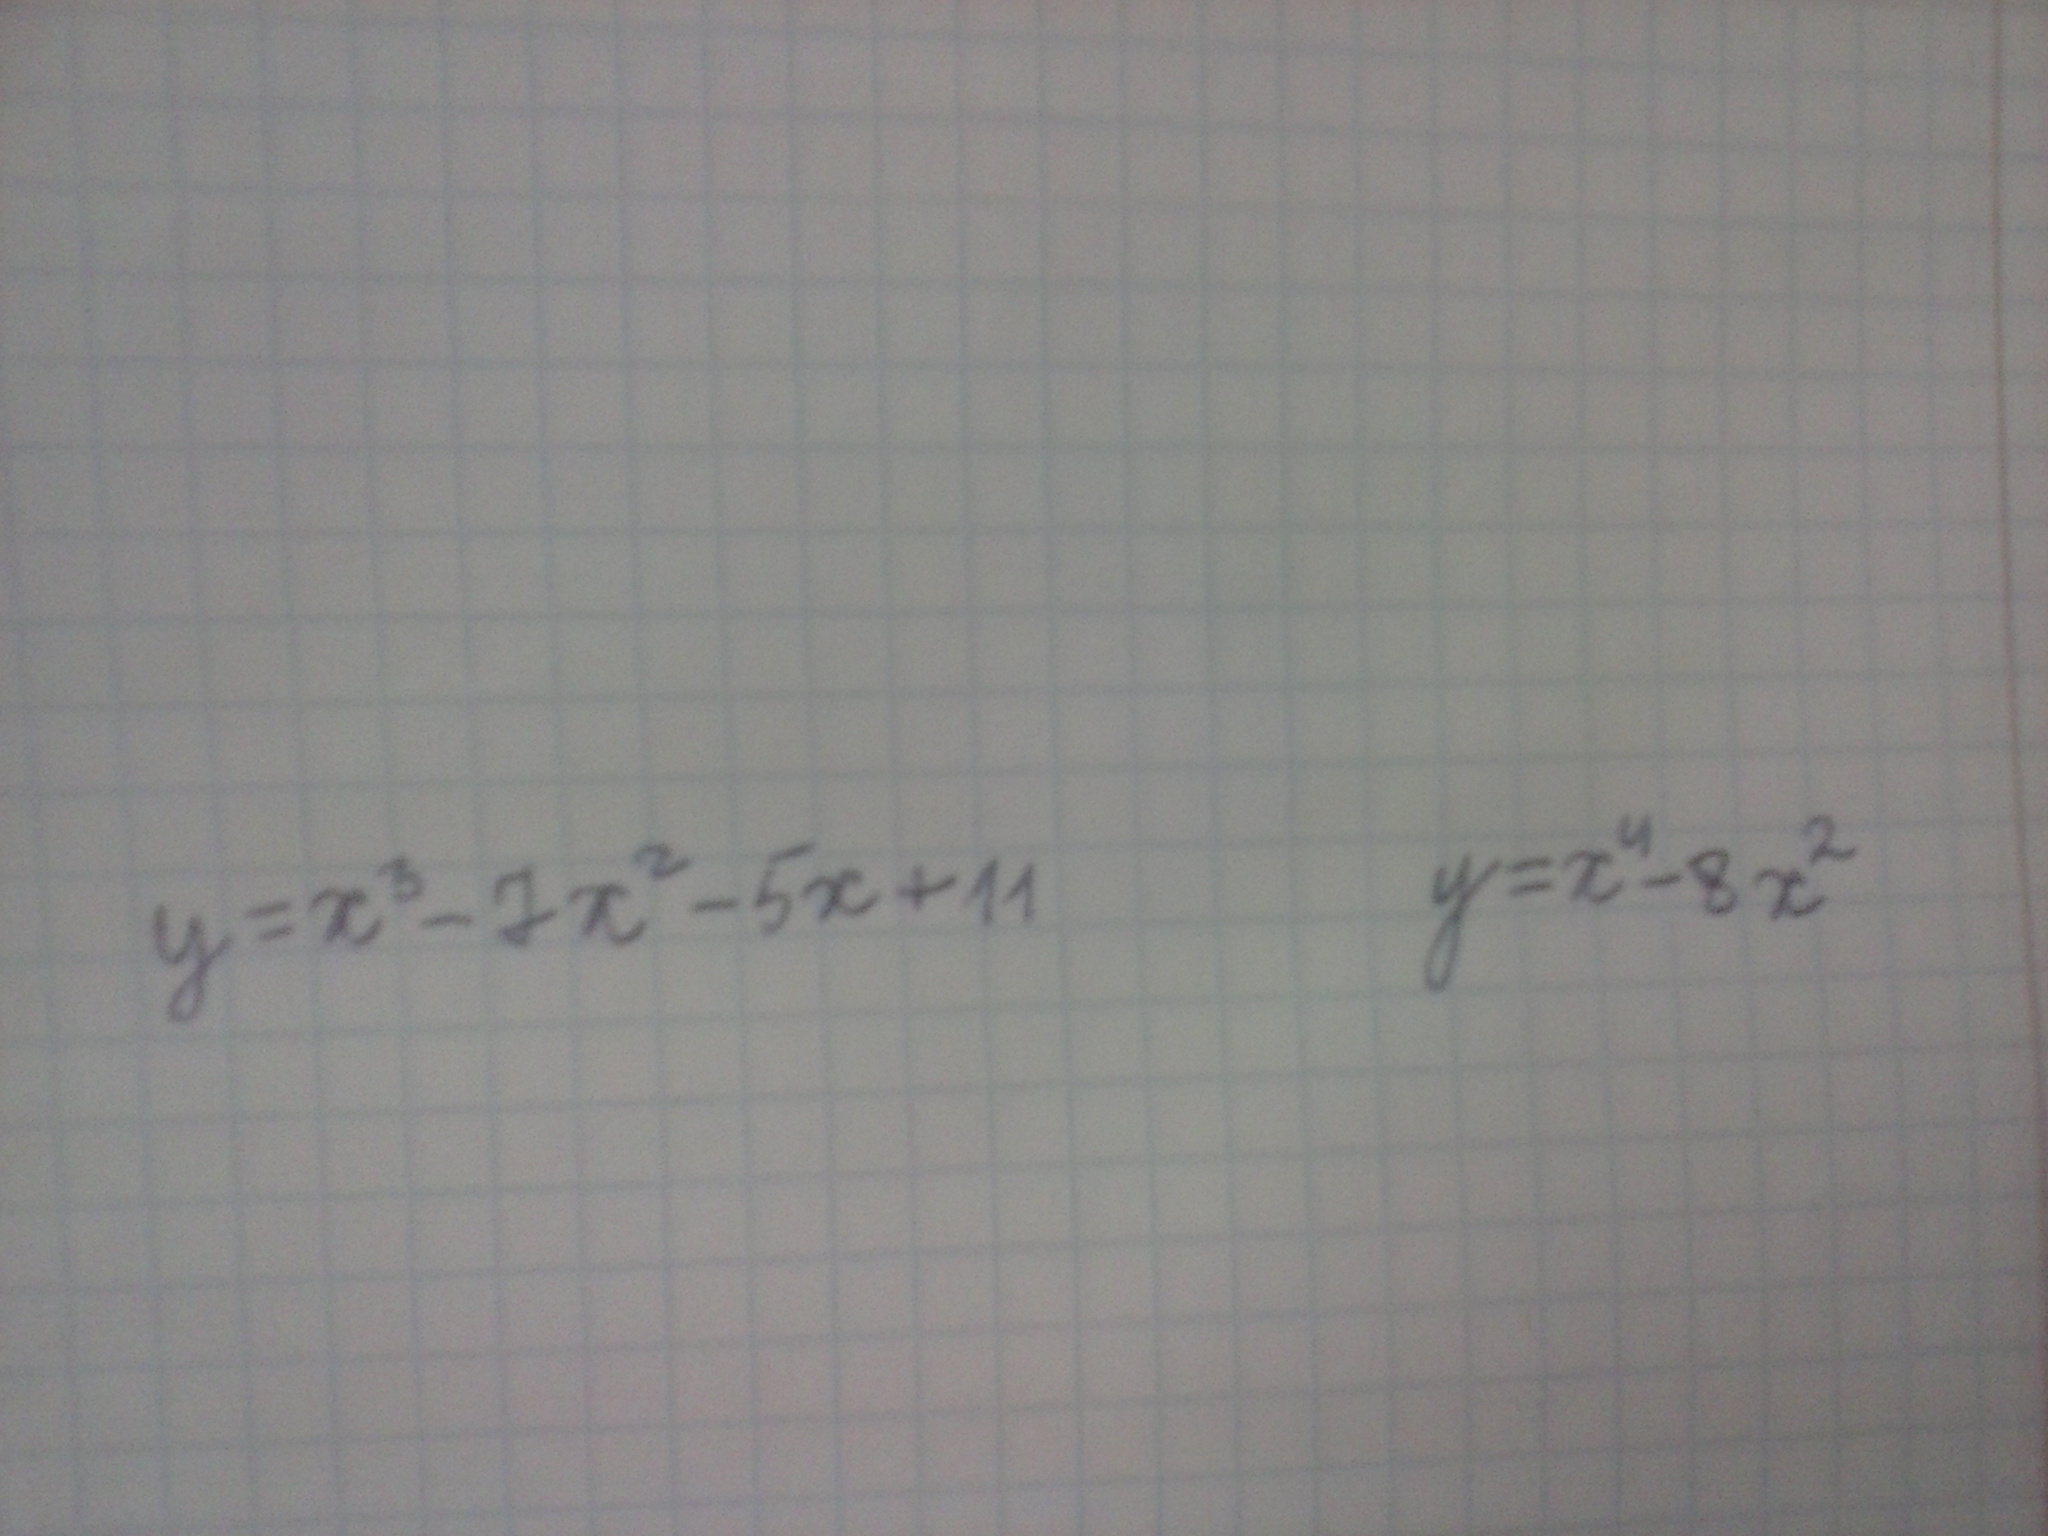 y=x³-7x²-5x+11 y=x⁴-8x²